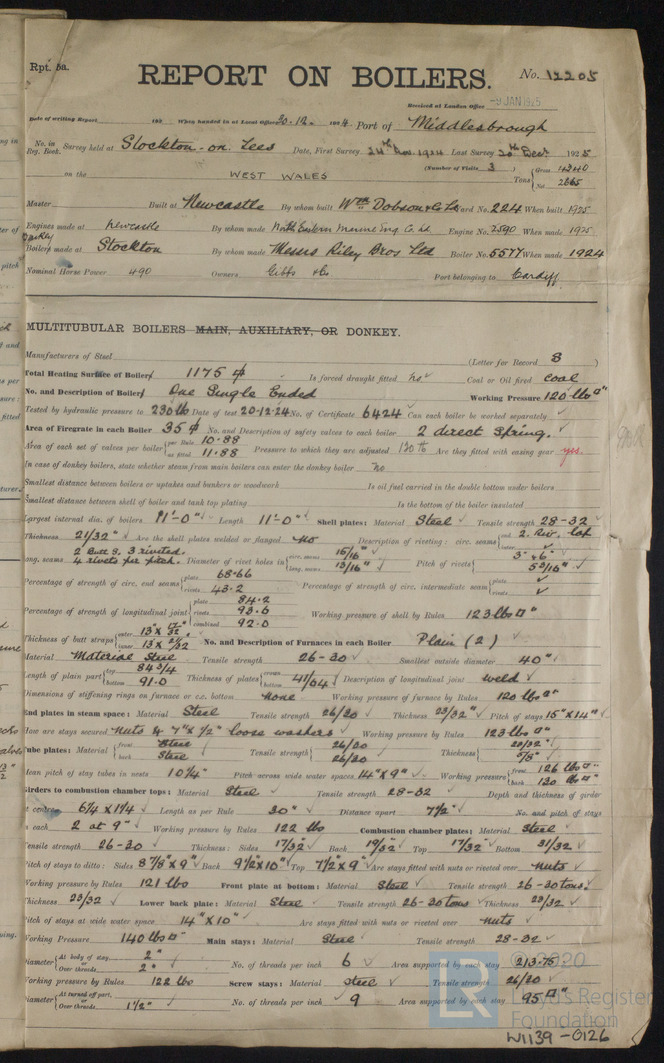 Rpt. 5a.
REPORT ON BOILERS.
No. 12205
Received at London Office -9 JAN 1925
Date of writing Report 192 When handed in at Local Office 30.12. 1924. Port of Middlesbrough
No. in Reg. Book. Survey held at Stockton-on-Tees Date, First Survey 24th Nov. 1924 Last Survey 20th Dect 1925
on the WEST WALES (Number of Visits 3) Tons Gross 4340 Net 2665
Master Built at Newcastle By whom built Wm Dobson & Co Ld Yard No. 224 When built 1925
Engines made at Newcastle By whom made North Eastern Marine Eng. Co. Ld Engine No. 2590 When made 1925
Boilers made at Stockton By whom made Messrs Riley Bros Ltd Boiler No. 5577 When made 1924
Nominal Horse Power 490 Owners Gibbs & Co Port belonging to Cardiff
MULTITUBULAR BOILERS MAIN, AUXILIARY, OR DONKEY.
Manufacturers of Steel (Letter for Record S)
Total Heating Surface of Boilers 1175 Is forced draught fitted no Coal or Oil fired coal
No. and Description of Boilers One Single Ended Working Pressure 120 lbs
Tested by hydraulic pressure to 230 lb Date of test 20.12.24 No. of Certificate 6424 Can each boiler be worked separately
Area of Firegrate in each Boiler 35 No. and Description of safety valves to each boiler 2 direct Spring.
Area of each set of valves per boiler per Rule 10.88 as fitted 11.88 Pressure to which they are adjusted Are they fitted with easing gear yes.
In case of donkey boilers, state whether steam from main boilers can enter the donkey boiler no
Smallest distance between boilers or uptakes and bunkers or woodwork Is oil fuel carried in the double bottom under boilers
Smallest distance between shell of boiler and tank top plating Is the bottom of the boiler insulated
Largest internal dia. of boilers 11'-0" Length 11'-0" Shell plates: Material Steel Tensile strength 28-32
Thickness 21/32" Are the shell plates welded or flanged No Description of riveting: circ. seams end 2. Riv. lap inter.
long. seams 2 Butt S. 3 riveted. 4 rivets per pitch. Diameter of rivet holes in circ. seams 15/16" long. seams 13/16" Pitch of rivets 3".6" 5 3/16"
Percentage of strength of circ. end seams plate 68.66 rivets 43.2 Percentage of strength of circ. intermediate seam plate rivets
Percentage of strength of longitudinal joint plate 84.2 rivets 93.6 combined 92.0 Working pressure of shell by Rules 123 lbs
Thickness of butt straps outer inner No. and Description of Furnaces in each Boiler Plain (2)
Material Material Steel Tensile strength 26-30 Smallest outside diameter 40"
Length of plain part top 84 3/4 bottom 91.0 Thickness of plates crown bottom 41/64 Description of longitudinal joint weld
Dimensions of stiffening rings on furnace or c.c. bottom None Working pressure of furnace by Rules 120 lbs
End plates in steam space: Material Steel Tensile strength 26/30 Thickness 23/32" Pitch of stays 15" x 14"
How are stays secured Nuts & 7" x 1/2" loose washers Working pressure by Rules 123 lbs
Tube plates: Material front Steel back Steel Tensile strength 26/30 26/30 Thickness 23/32" 5/8"
Mean pitch of stay tubes in nests 10 1/4" Pitch across wide water spaces 14" x 9" Working pressure front 126 lbs back 130 lbs
Girders to combustion chamber tops: Material Steel Tensile strength 28-32 Depth and thickness of girder
at centre 6 1/4 x 1 1/4 Length as per Rule 30" Distance apart 7 1/2" No. and pitch of stays
in each 2 at 9" Working pressure by Rules 122 lbs Combustion chamber plates: Material Steel
Tensile strength 26-30 Thickness: Sides 17/32" Back 19/32" Top 17/32" Bottom 31/32
Pitch of stays to ditto: Sides 8 7/8" x 9" Back 9 1/2" x 10" Top 7 1/2" x 9" Are stays fitted with nuts or riveted over Nuts
Working pressure by Rules 121 lbs Front plate at bottom: Material Steel Tensile strength 26-30 tons.
Thickness 23/32 Lower back plate: Material Steel Tensile strength 26-30 tons Thickness 23/32
Pitch of stays at wide water space 14" x 10" Are stays fitted with nuts or riveted over nuts
Working Pressure 140 lbs Main stays: Material Steel Tensile strength 28-32
Diameter At body of stay, 2" or Over threads 2" No. of threads per inch 6 Area supported by each stay 213.75
Working pressure by Rules 122 lbs Screw stays: Material Steel Tensile strength 26/30
Diameter At turned off part, or Over threads 1 1/2" No. of threads per inch 9 Area supported by each stay 95
© 2020
Lloyd's Register
Foundation
W1139-0126